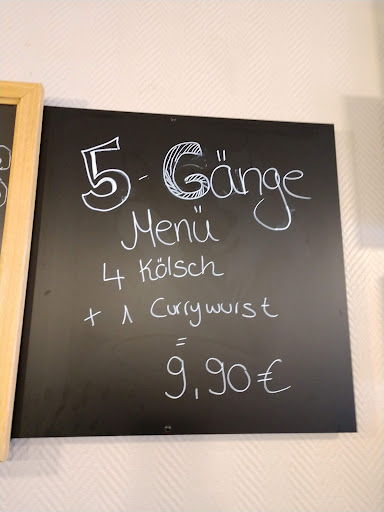 5-Gänge
Menü
4 Kölsch
+ 1 Currywurst
=
9,90€